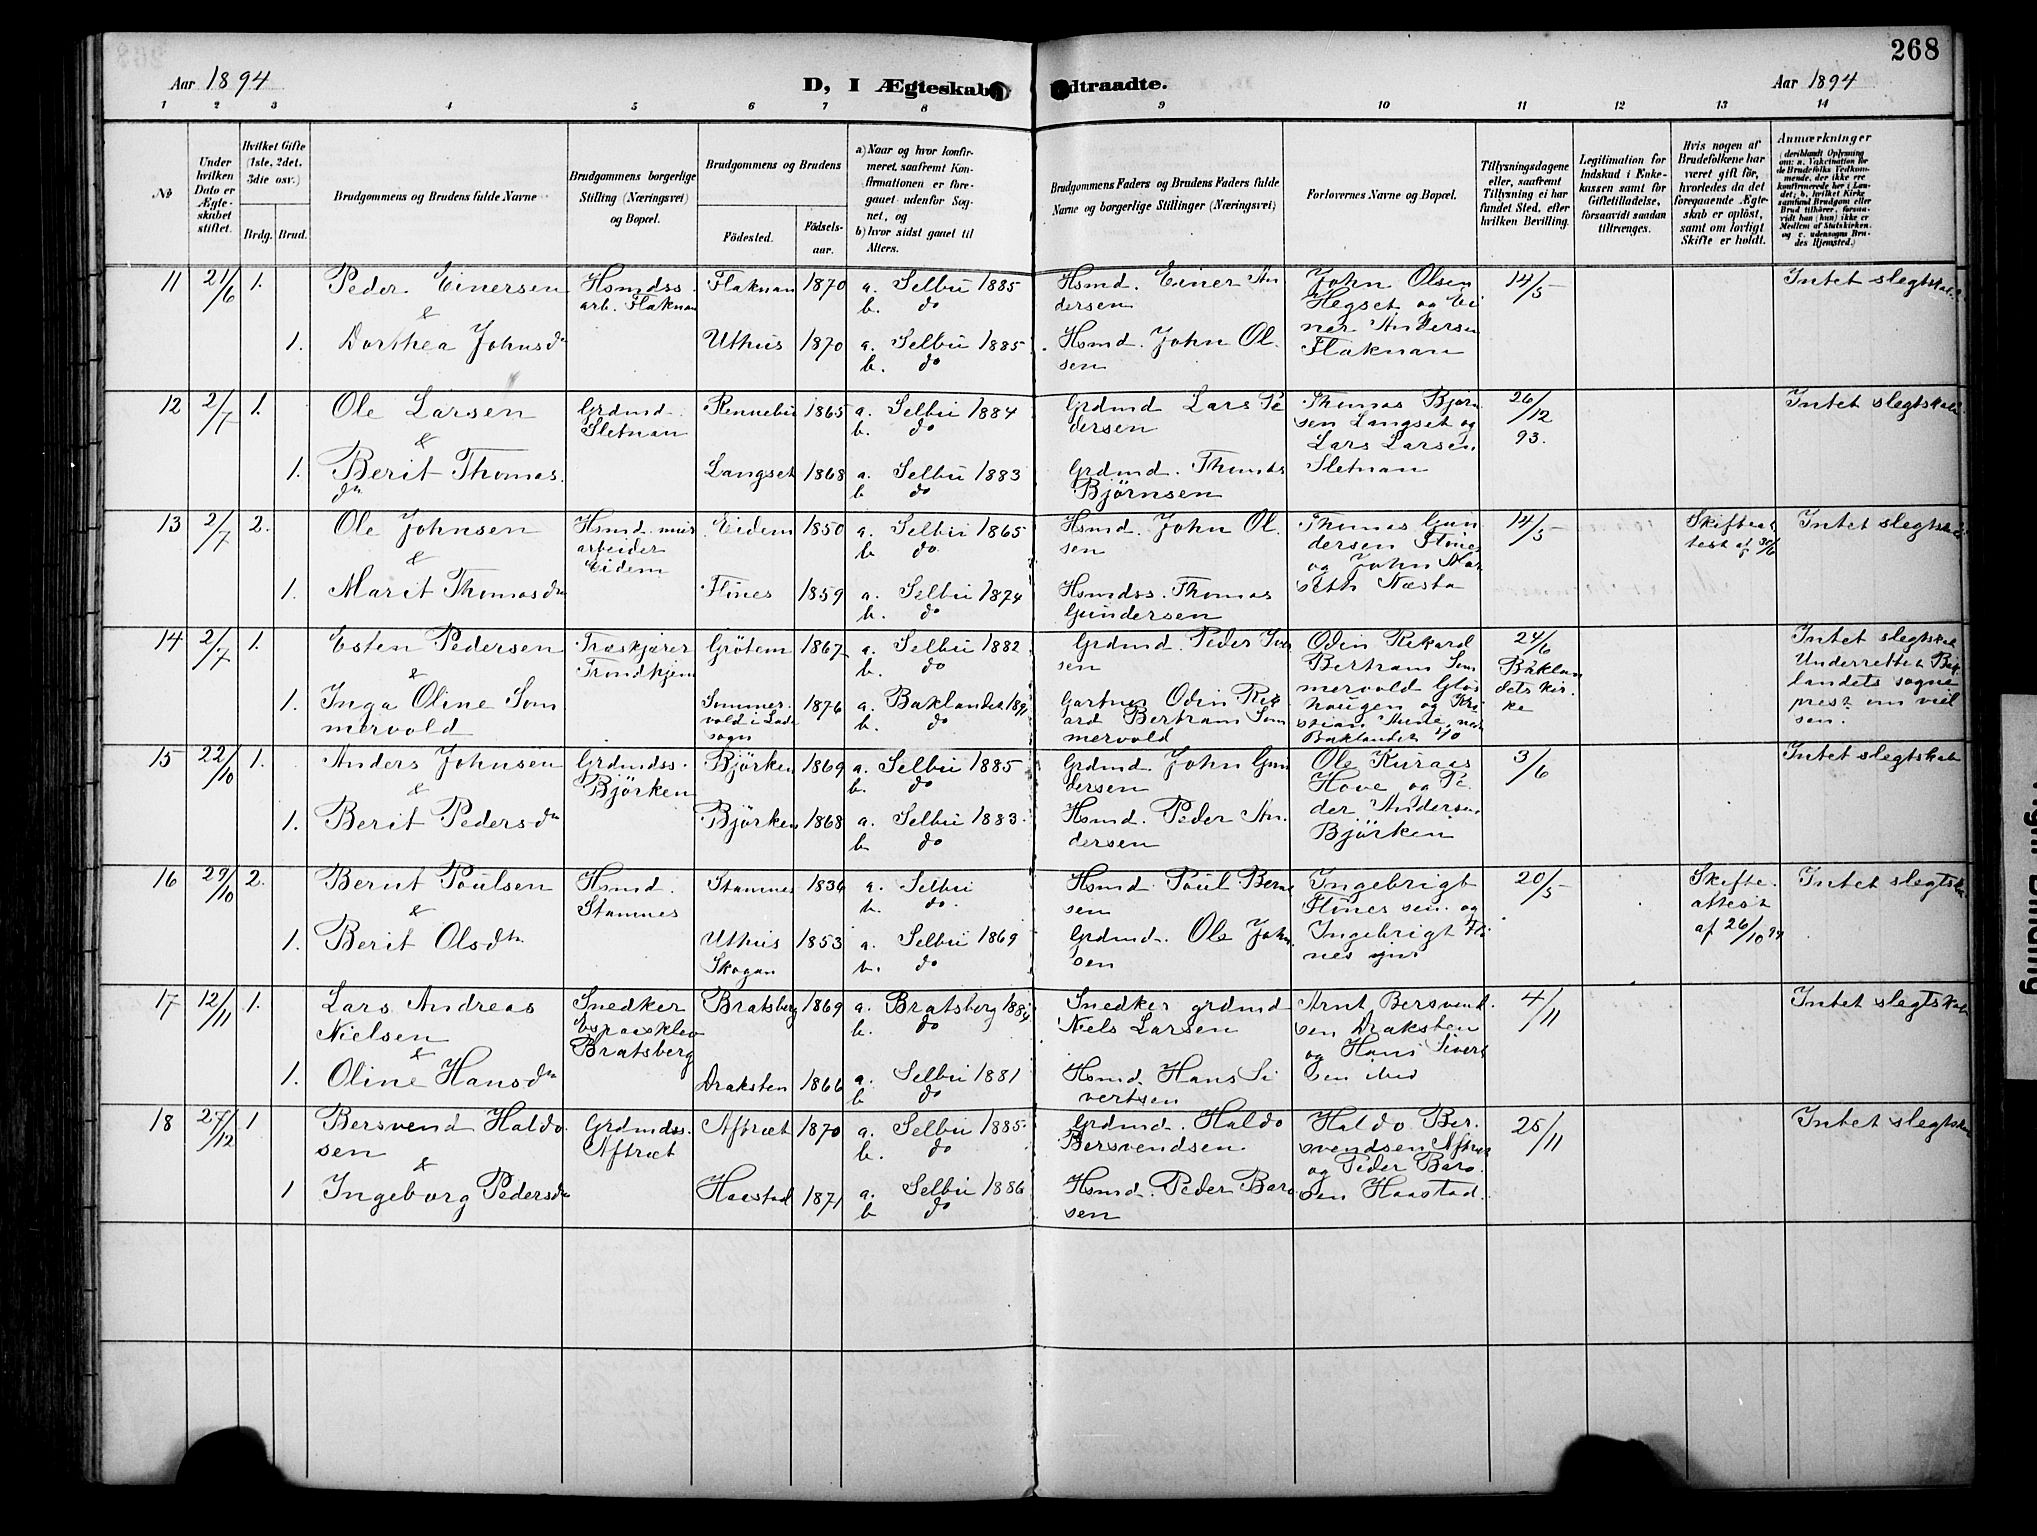 268
Aar 1894
D, I Ægteskab
dtraadte.
Aar 1894
1 2 3 4 5 6 7 8 9 10 11 12 13 14
№
Under hvilken Dato er Ægteskabet stiftet.
Hvilket Gifte (1ste, 2det, 3die osv.)
Brdg. Brud.
Brudgommens og Brudens fulde Navne
Brudgommens borgerlige Stilling (Næringsvei) og Bopæl.
Brudgommens og Brudens
Födested.
Födsels-aar.
a) Naar og hvor konfirmeret, saafremt Konfirmationen er foregaaet udenfor Sognet, og
b) hvor sidst gaaet til Alters.
Brudgommens Faders og Brudens Faders fulde Navne og borgerlige Stillinger (Næringsvei)
Forlovernes Navne og Bopæl.
Tillysningsdagene eller, saafremt Tillysning ei har fundet Sted, efter hvilken Bevilling.
Legitimation for Indskud i Enkekassen samt for Giftetilladelse, forsaavidt saadan tiltrænges.
Hvis nogen af Brudefolkene har været gift før, hvorledes da det foregaaende Ægteskab er oplöst, samt om lovligt Skifte er holdt.
Anmærkninger
11 21/6 1. Peder Einersen Hsmdss. arb. Flaknan Flaknan 1870 a. Selbu 1885 b. do Hsmd. Einer Andersen John Olsen Hegset og Einer Andersen Flaknan 14/5 Intet slegtskab
&
1. Dorthea Johnsdn Uthus 1870 a. Selbu 1885 b. do Hsmd. John Olsen
12 2/7 1. Ole Larsen Grdmd. Sletnan Rennebu 1865 a. Selbu 1884 b. do Grdmd Lars Pedersen Thomas Bjørnsen Langset og Lars Larsen Sletnan 26/12 93. Intet slegtskab
&
1. Berit Thomasdn Langset 1868 a. Selbu 1883 b do Grdmd. Thomas Bjørnsen
13 2/7 2. Ole Johnsen Hsmd. arbeider Eidem Eidem 1850 a. Selbu 1865 b do Hsmd. John Olsen Thomas Gundersen Flines og John Næsta 14/5 Skifteattest af 30/6 Intet slegtskab
&
1. Marit Thomasdn Flines 1859 a. Selbu 1874 b. do Hsmdss. Thomas Gundersen
14 2/7 1. Esten Pedersen Træskjærer Trondhjem Grøtem 1867 a. Selbu 1882 b. do Grdmd. Peder Iversen Odin Rikard Bertram Sommervold og Baklandet 24/6 Baklandets kirke Intet slegtskab Underrettet Baklandets sogneprest om vielsen.
&
1. Inga Oline Sommervold Sommervold i Lade sogn 1876 a. Baklandet b. do Gartner Odin Rikard Bertram Sommervold
15 22/10 1. Anders Johnsen Grdmdss. Bjørken Bjørken 1869 a. Selbu 1885 b. do Grdmd. John Gundersen Ole Kuraas Hove og Peder Andersen Bjørken 3/6 Intet slegtskab
&
1. Berit Pedersdn Bjørken 1868 a. Selbu 1883 b. do Hsmd. Peder Andersen
16 29/10 2. Bernt Poulsen Hsmd. Stamnes Stamnes 1836 a. Selbu b. do. Hsmd. Poul Berntsen Ingebrigt Flines sen. og Ingebrigt Flines jun. 20/5 Skifteattest af 26/10 94 Intet slegtskab
&
1. Berit Olsdtr. Uthus Skogan 1853 a. Selbu 1869 b. do Grdmd. Ole Johnsen
17 12/11 1. Lars Andreas Nielsen Snedker Bratsberg Bratsberg 1869 a. Bratsberg 1884 b. do Snedker grdmd Niels Larsen Arnt Bersvendsen Draksten og Hans Sivertsen ibid 4/11 Intet slegtskab
&
1. Oline Hansdn Draksten 1866 a. Selbu 1881 b do Hsmd. Hans Sivertsen
18 27/12 1 Bersvend Haldosen Grdmdss. Aftræt Aftræt 1870 a. Selbu 1885 b. do Grdmd. Haldo Bersvendsen. Haldo Bersvendsen Aftræt og Peder Barosen Haastad. 25/11 Intet slegtskab
&
1 Ingeborg Pedersdn Haastad 1871 a. Selbu 1886 b do Hsmd. Peder Barosen